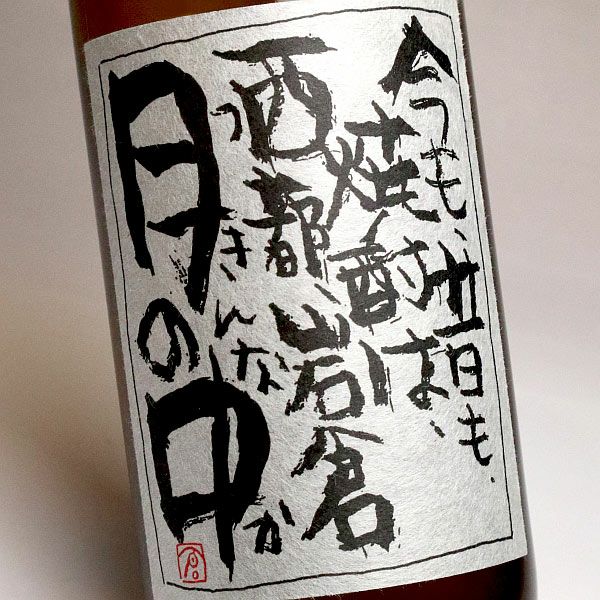 今も、昔も、
焼酎は、
西都、岩倉
つきんなか
月の中